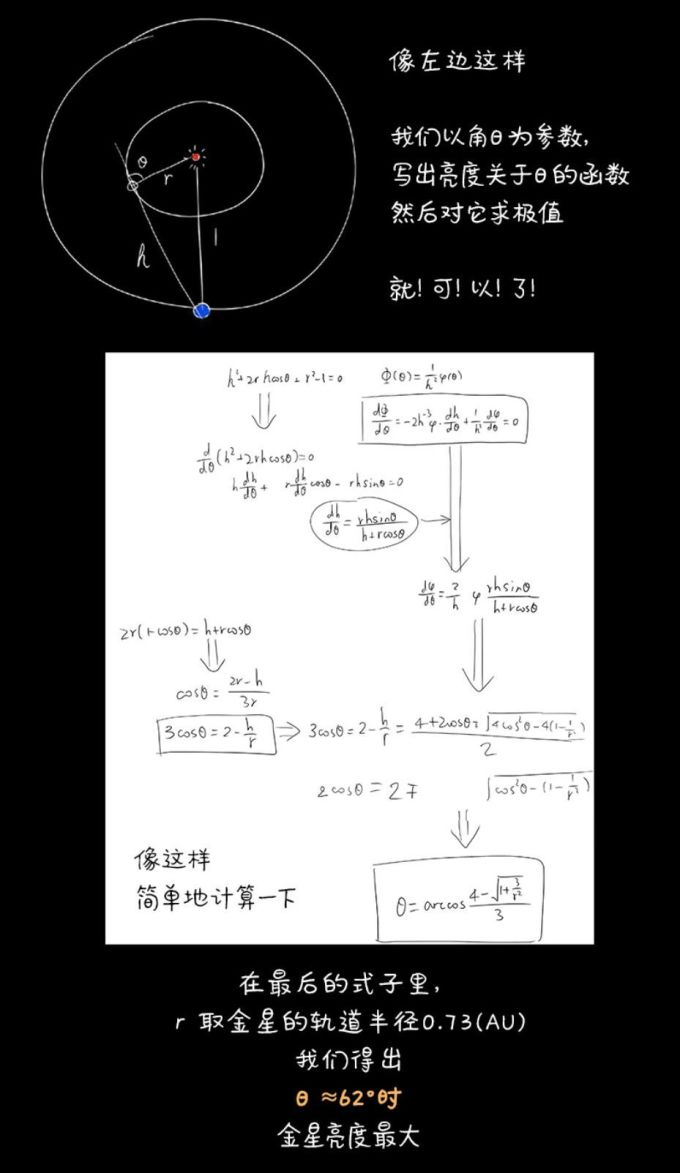 像左边这样
我们以角θ为参数,
写出亮度关于θ的函数
然后对它求极值
就!可!以!了!
θ
r
h
1
h²+2rhcosθ+r²-1=0
Φ(θ)=1/h² φ(θ)
dΦ/dθ=-2h⁻³φ·dh/dθ+1/h² dφ/dθ=0
d/dθ(h²+2rhcosθ)=0
h dh/dθ+ r dh/dθ cosθ- rhsinθ=0
dh/dθ=rhsinθ/h+rcosθ
dφ/dθ=2/h φ rhsinθ/h+rcosθ
2r(1-cosθ)=h+rcosθ
cosθ=2r-h/3r
3cosθ=2-h/r
3cosθ=2-h/r=4+2cosθ±√4cos²θ-4(1-1/r²)/2
2cosθ=2∓ √cos²θ-(1-1/r²)
θ=arccos 4-√1+3/r²/3
像这样
简单地计算一下
在最后的式子里,
r 取金星的轨道半径0.73(AU)
我们得出
θ ≈62°时
金星亮度最大